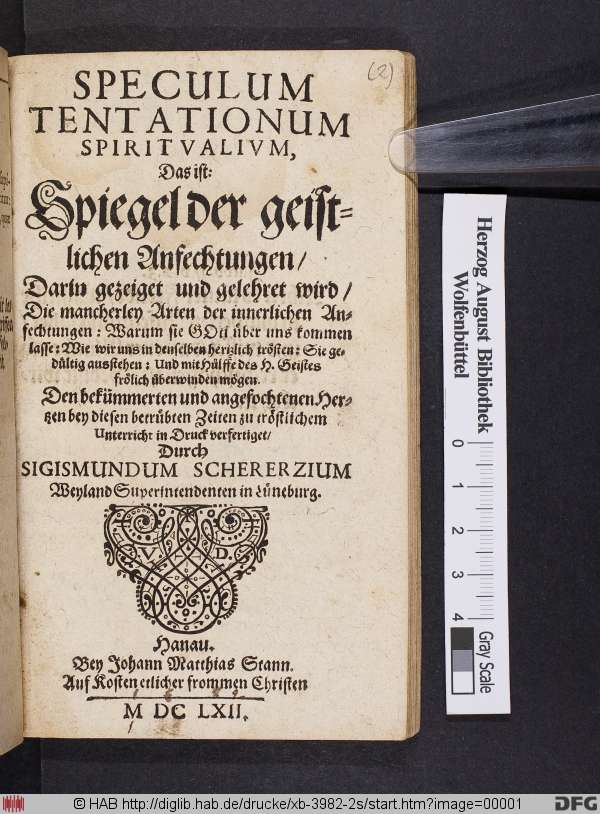 (2)
SPECULUM
TENTATIONUM
SPIRITVALIVM,
Das ist:
Spiegel der geist-
lichen Anfechtungen/
Darin gezeiget und gelehret wird/
Die mancherley Arten der innerlichen An-
fechtungen: Warum sie GOtt über uns kommen
lasse: Wie wir uns in denselben hertzlich trösten: Sie ge-
dültig ausstehen: Und mit Hülffe des H. Geistes
frölich überwinden mögen.
Den bekümmerten und angefochtenen Her-
tzen bey diesen betrübten Zeiten zu tröstlichem
Unterricht in Druck verfertiget/
Durch
SIGISMUNDUM SCHERERZIUM
Weyland Superintendenten in Lüneburg.
V. D.
Hanau.
Bey Johann Matthias Stann.
Auf Kosten etlicher frommen Christen
M DC LXII.
Herzog August Bibliothek
Wolfenbüttel
0
1
2
3
4
Gray Scale
© HAB http://diglib.hab.de/drucke/xb-3982-2s/start.htm?image=00001
DFG